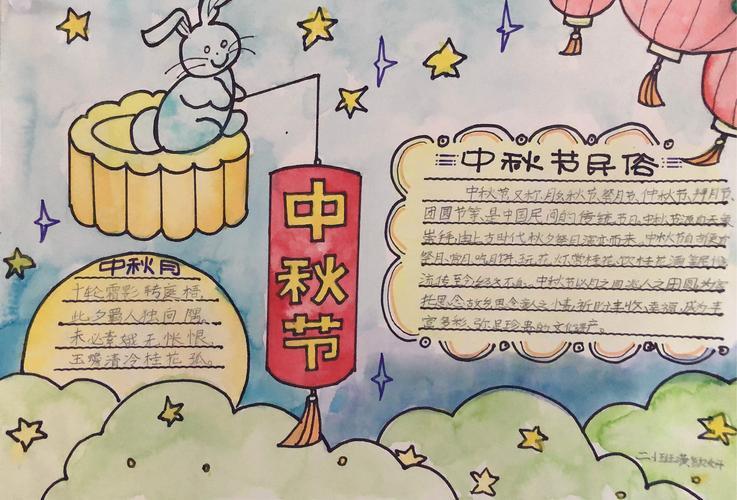 中秋节
中秋月
十轮霜影转庭梧,
此夕羁人独向隅。
未必素娥无怅恨,
玉蟾清冷桂花孤。
中秋节民俗
中秋节,又称月夕、秋节、祭月节、仲秋节、拜月节、
团圆节等,是中国民间的传统节日。中秋节源自天象
崇拜,由上古时代秋夕祭月演变而来。中秋节自古便有
祭月、赏月、吃月饼、玩花灯、赏桂花、饮桂花酒等民俗
流传至今,经久不息。中秋节以月之圆兆人之团圆,为寄
托思念故乡,思念亲人之情,祈盼丰收、幸福,成为丰
富多彩、弥足珍贵的文化遗产。
二班黄